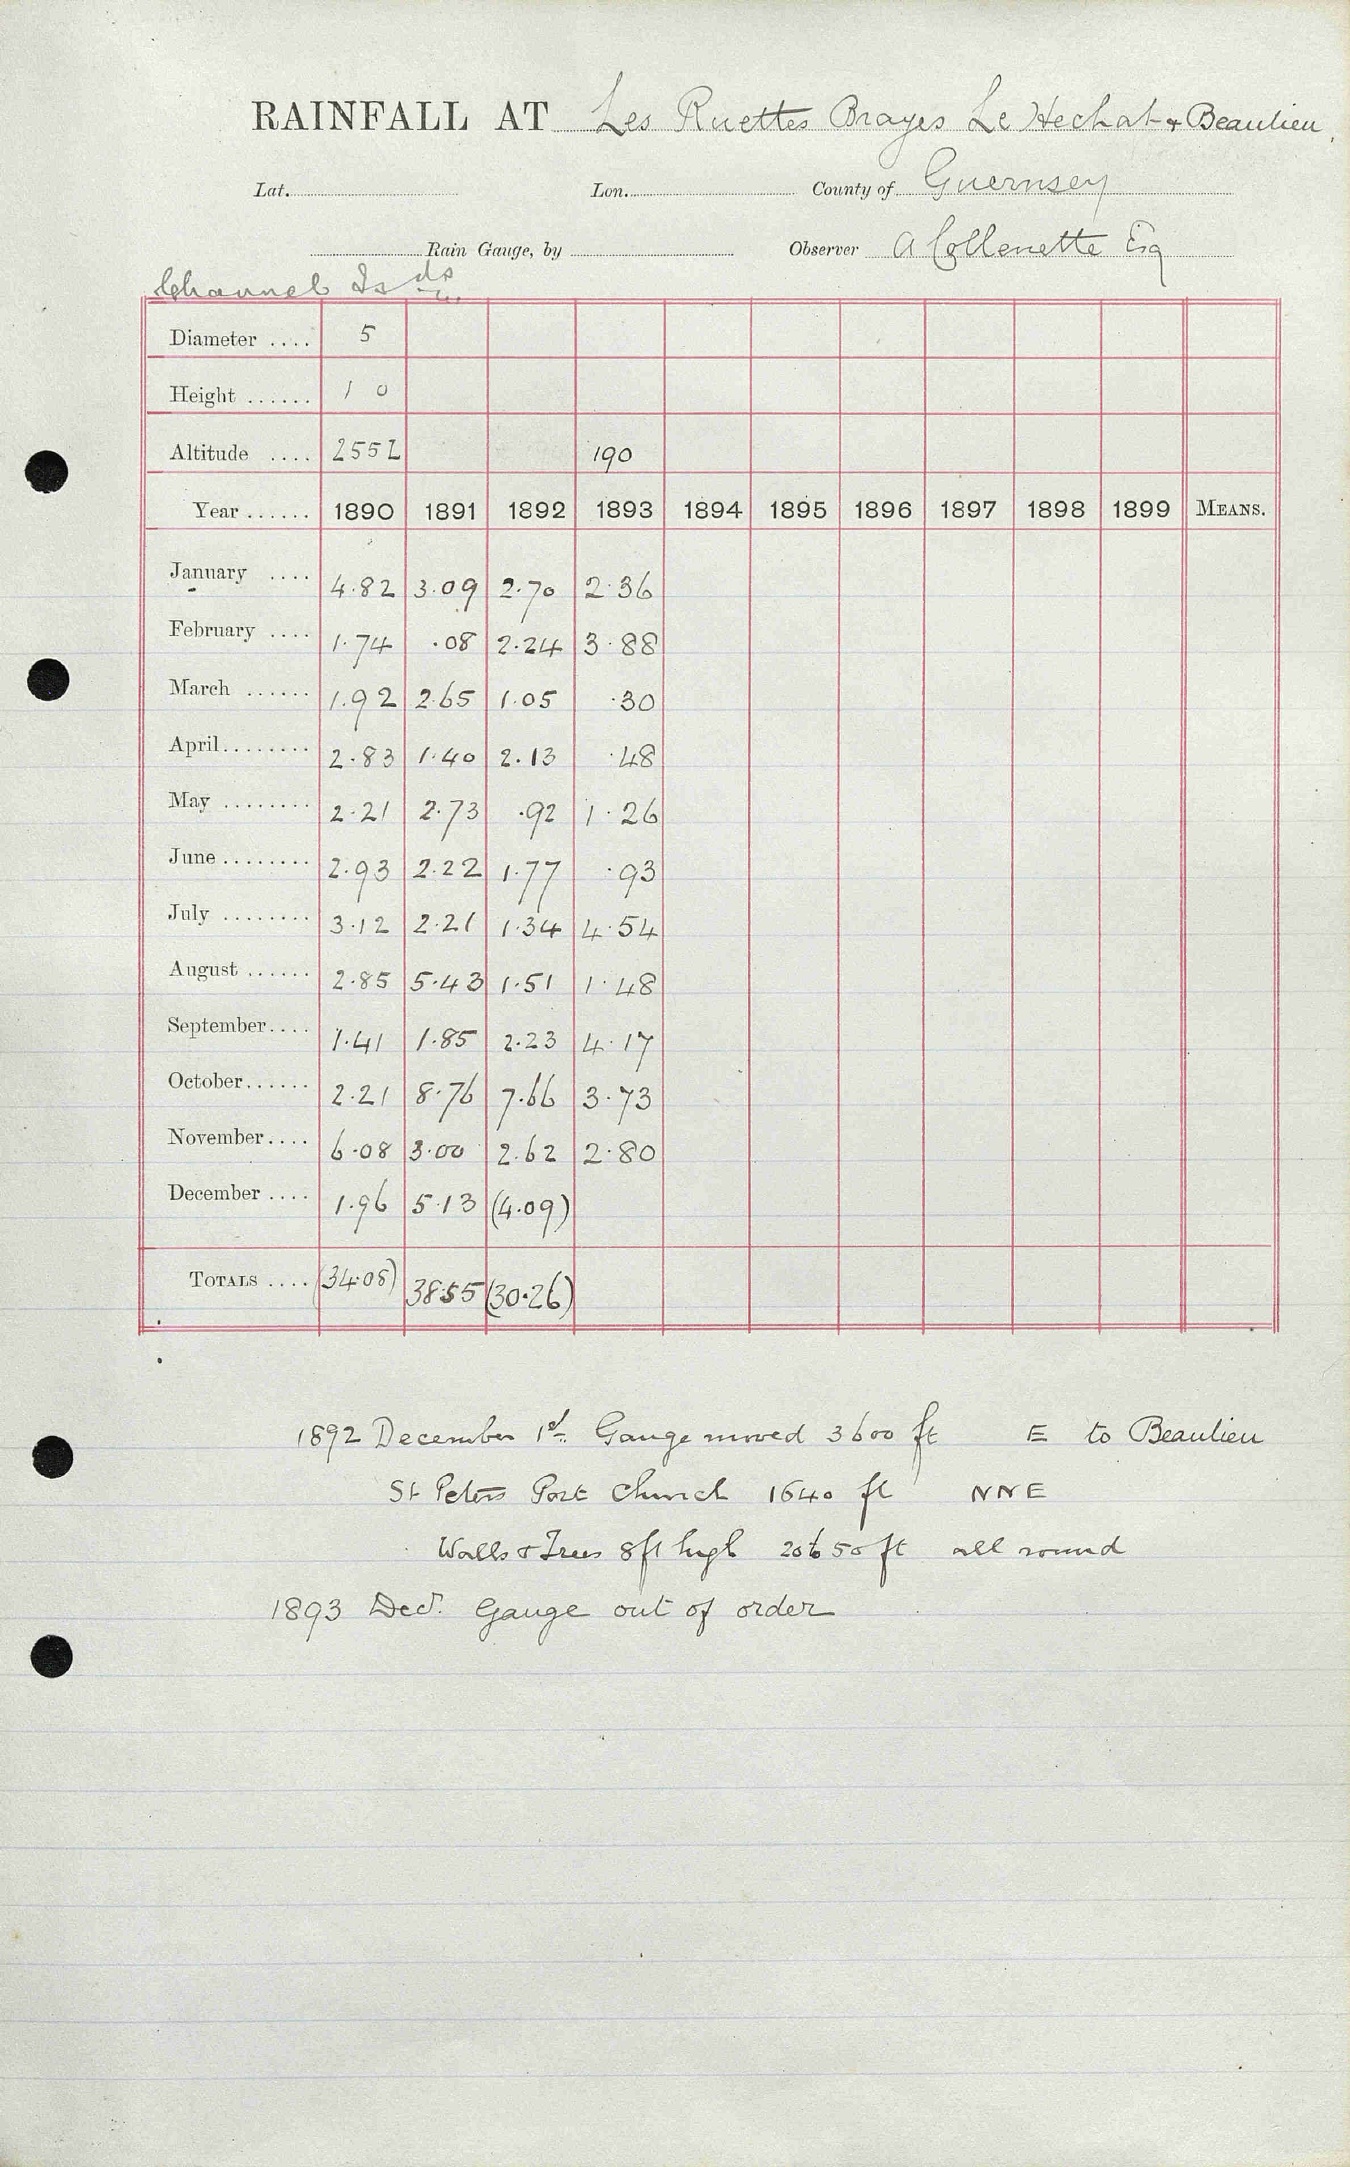 RAINFALL AT Les Ruettes Brayes Le Hechat + Beaulieu
Lat. Lon. County of Guernsey
Rain Gauge, by Observer A Collenette Esq
Channel Isds
Diameter .... 5
Height ...... 1 0
Altitude .... 255 190
Year ...... 1890 1891 1892 1893 1894 1895 1896 1897 1898 1899 MEANS.
January .... 4.82 3.09 2.70 2.36
February .... 1.74 .08 2.24 3.88
March ...... 1.92 2.65 1.05 .30
April........ 2.83 1.40 2.13 .48
May ........ 2.21 2.73 .92 1.26
June ........ 2.93 2.22 1.77 .93
July ........ 3.12 2.21 1.34 4.54
August ...... 2.85 5.43 1.51 1.48
September.... 1.41 1.85 2.23 4.17
October...... 2.21 8.76 7.66 3.73
November.... 6.08 3.00 2.62 2.80
December .... 1.96 5.13 (4.09)
TOTALS .... (34.08) 38.55 (30.26)
1892 December 1st. Gauge moved 3600 ft E to Beaulieu
St Peters Port Church 1640 ft NNE
Walls & Trees 8ft high 20 to 50 ft all round
1893 Decr. Gauge out of order